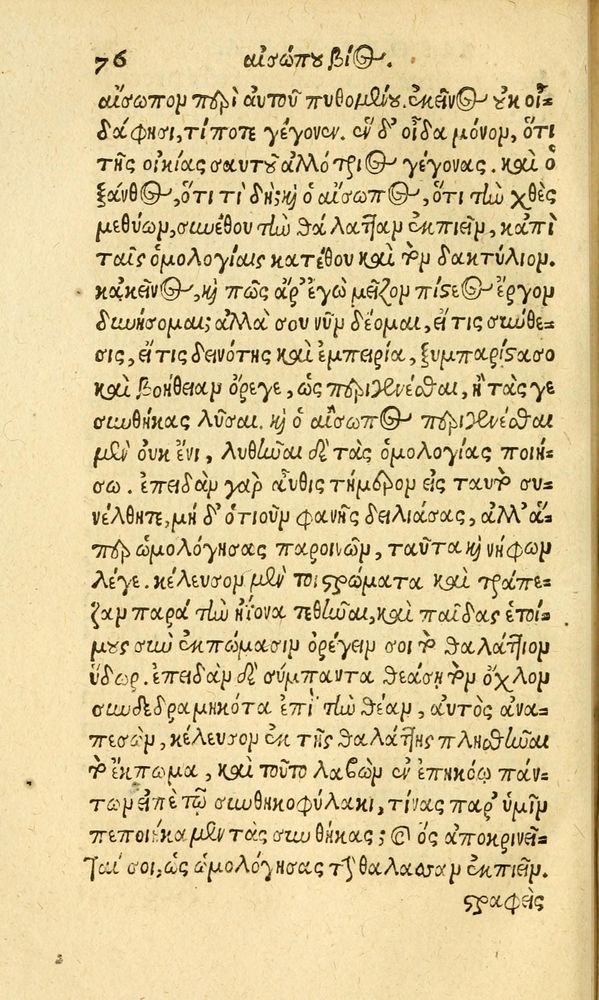 76 αἰσώπου βίος.
αἴσωπον περὶ αὐτοῦ πυθομένου. ἐκεῖνος οὐκ οἶ-
δά φησι, τί ποτε γέγονεν. ἓν δ' οἶδα μόνον, ὅτι
τῆς οἰκίας σαυτοῦ ἀλλότριος γέγονας. καὶ ὁ
ξάνθος, ὅτι τί δή; καὶ ὁ αἴσωπος, ὅτι τὴν χθὲς
μεθύων, συνέθου τὴν θάλατταν ἐκπιεῖν, κἀπὶ
ταῖς ὁμολογίαις κατέθου καὶ τὸν δακτύλιον.
κἀκεῖνος, καὶ πῶς ἄρ' ἐγὼ μεῖζον πίστεος ἔργον
δυνήσομαι; ἀλλὰ σου νῦν δέομαι, εἴ τις σύνθε-
σις, εἴ τις δεινότης καὶ ἐμπειρία, ξυμπαρίστασο
καὶ βοήθειαν ὄρεγε, ὡς περιγενέσθαι, ἢ τάς γε
συνθήκας λῦσαι. καὶ ὁ αἴσωπος περιγενέσθαι
μὲν οὐκ ἔνι, λυθῆναι δὲ τὰς ὁμολογίας ποιή-
σω. ἐπειδὰν γὰρ αὖθις τήμερον εἰς ταυτὸ συ-
νέλθητε, μὴ δ' ὁτιοῦν φανῇς δειλιάσας, ἀλλ' ἅ-
περ ὡμολόγησας παροινῶν, ταῦτα καὶ νήφων
λέγε. κέλευσον μὲν τοι στρώματα καὶ τράπε-
ζαν παρὰ τὴν ἠϊόνα τεθῆναι, καὶ παῖδας ἑτοί-
μους σὺν ἐκπώμασιν ὀρέγειν σοι τὸ θαλάττιον
ὕδωρ. ἐπειδὰν δὲ σύμπαντα θεάσῃ τὸν ὄχλον
συνδεδραμηκότα ἐπὶ τὴν θέαν, αὐτὸς ἀνα-
πεσὼν, κέλευσον ἐκ τῆς θαλάττης πλησθῆναι
τὸ ἔκπωμα, καὶ τοῦτο λαβὼν ἐν ἐπηκόῳ πάν-
των εἰπὲ τῷ συνθηκοφύλακι, τίνας παρ' ὑμῖν
πεποίηκα μὲν τὰς συνθήκας; ὃς ἀποκρινεῖ-
ταί σοι, ὡς ὡμολόγησας τὴν θάλασσαν ἐκπιεῖν.
στραφεὶς